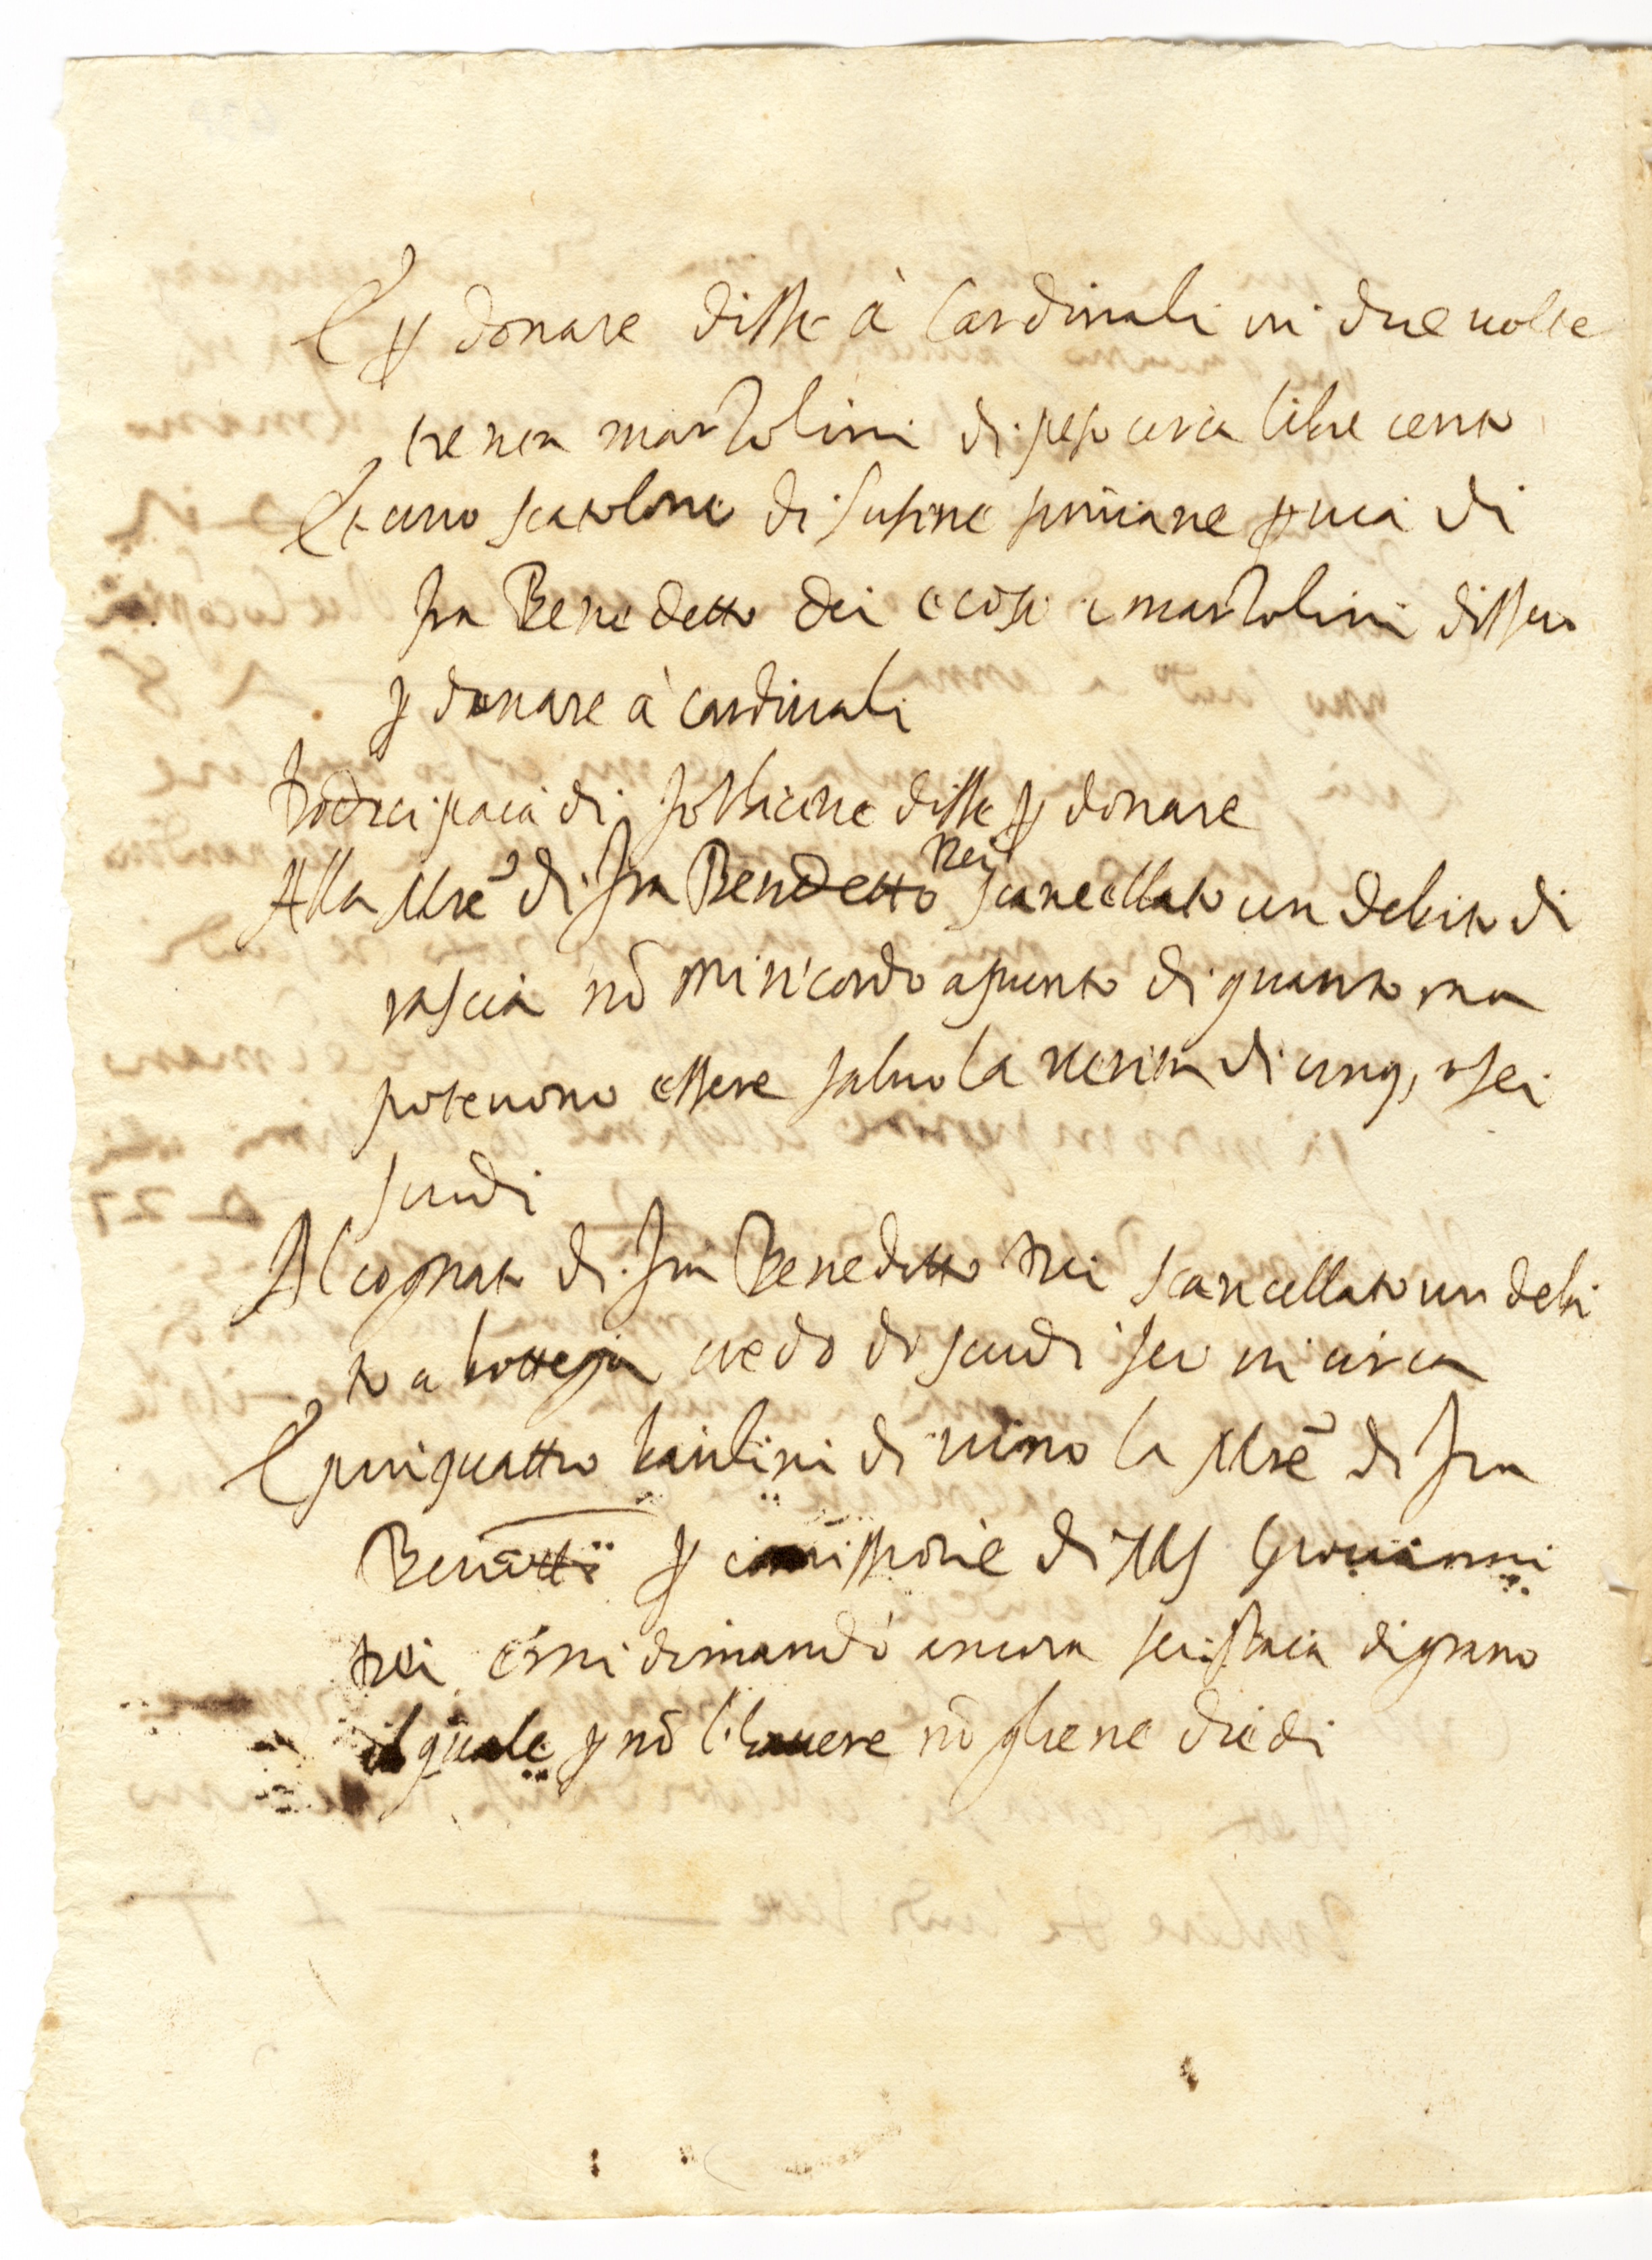 E p donare disse à Cardinali in due uolte
trenta marzolini di peso circa libre cento
Et uno scatolone di susine simiane p uia di
fra Benedetto dei e cosi i marzolini disseno
p donare à cardinali
dodeci paia di disse p donare
Alla Mrē di fra Benedetto Nei scancellato un debito di
rascia nō mi ricordo apunto di quanto ma
poteuono essere saluo la uerita di cinq, o sei
scudi
Al cognato di fra Benedetto Nei scancellato un debi
to a bottega credo di scudi sei in circa
E piu quattro barili di uino la Mrē di fra
p comissione di Ms Giouanni
Nei e mi dimandò ancora sei staia di grano
il quale p nō l'hauere nō gliene diedi